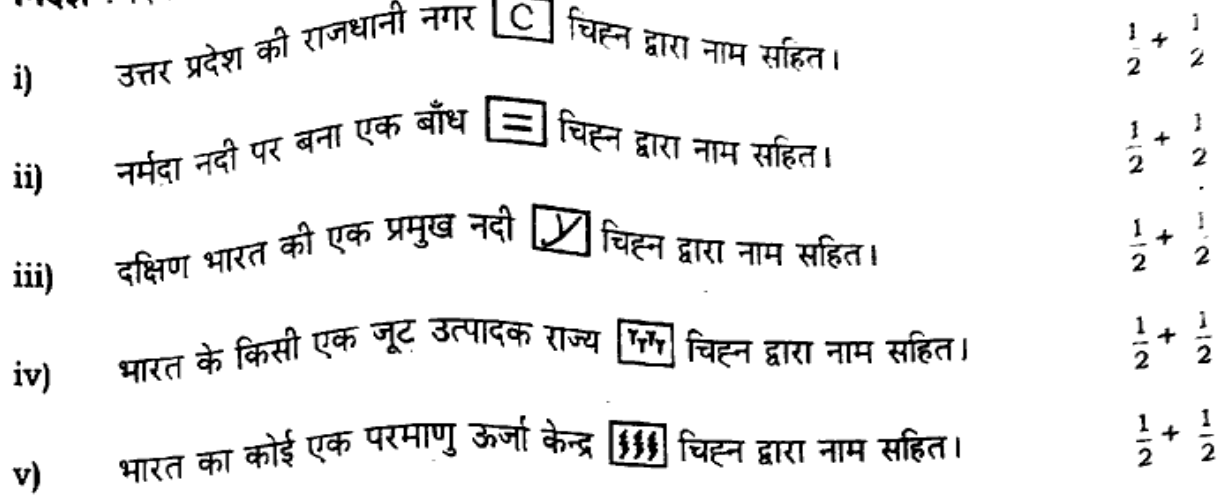 i) उत्तर प्रदेश की राजधानी नगर C चिह्न द्वारा नाम सहित। 1/2 + 1/2
ii) नर्मदा नदी पर बना एक बाँध = चिह्न द्वारा नाम सहित। 1/2 + 1/2
iii) दक्षिण भारत की एक प्रमुख नदी चिह्न द्वारा नाम सहित। 1/2 + 1/2
iv) भारत के किसी एक जूट उत्पादक राज्य चिह्न द्वारा नाम सहित। 1/2 + 1/2
v) भारत का कोई एक परमाणु ऊर्जा केन्द्र चिह्न द्वारा नाम सहित। 1/2 + 1/2